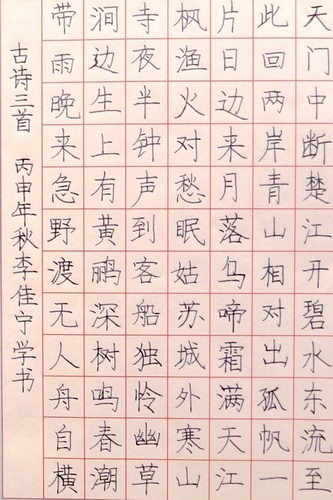 天门中断楚江开碧水东流至
此回两岸青山相对出孤帆一
片日边来月落乌啼霜满天江
枫渔火对愁眠姑苏城外寒山
寺夜半钟声到客船独怜幽草
涧边生上有黄鹂深树鸣春潮
带雨晚来急野渡无人舟自横
古诗三首 丙申年秋李佳宁学书